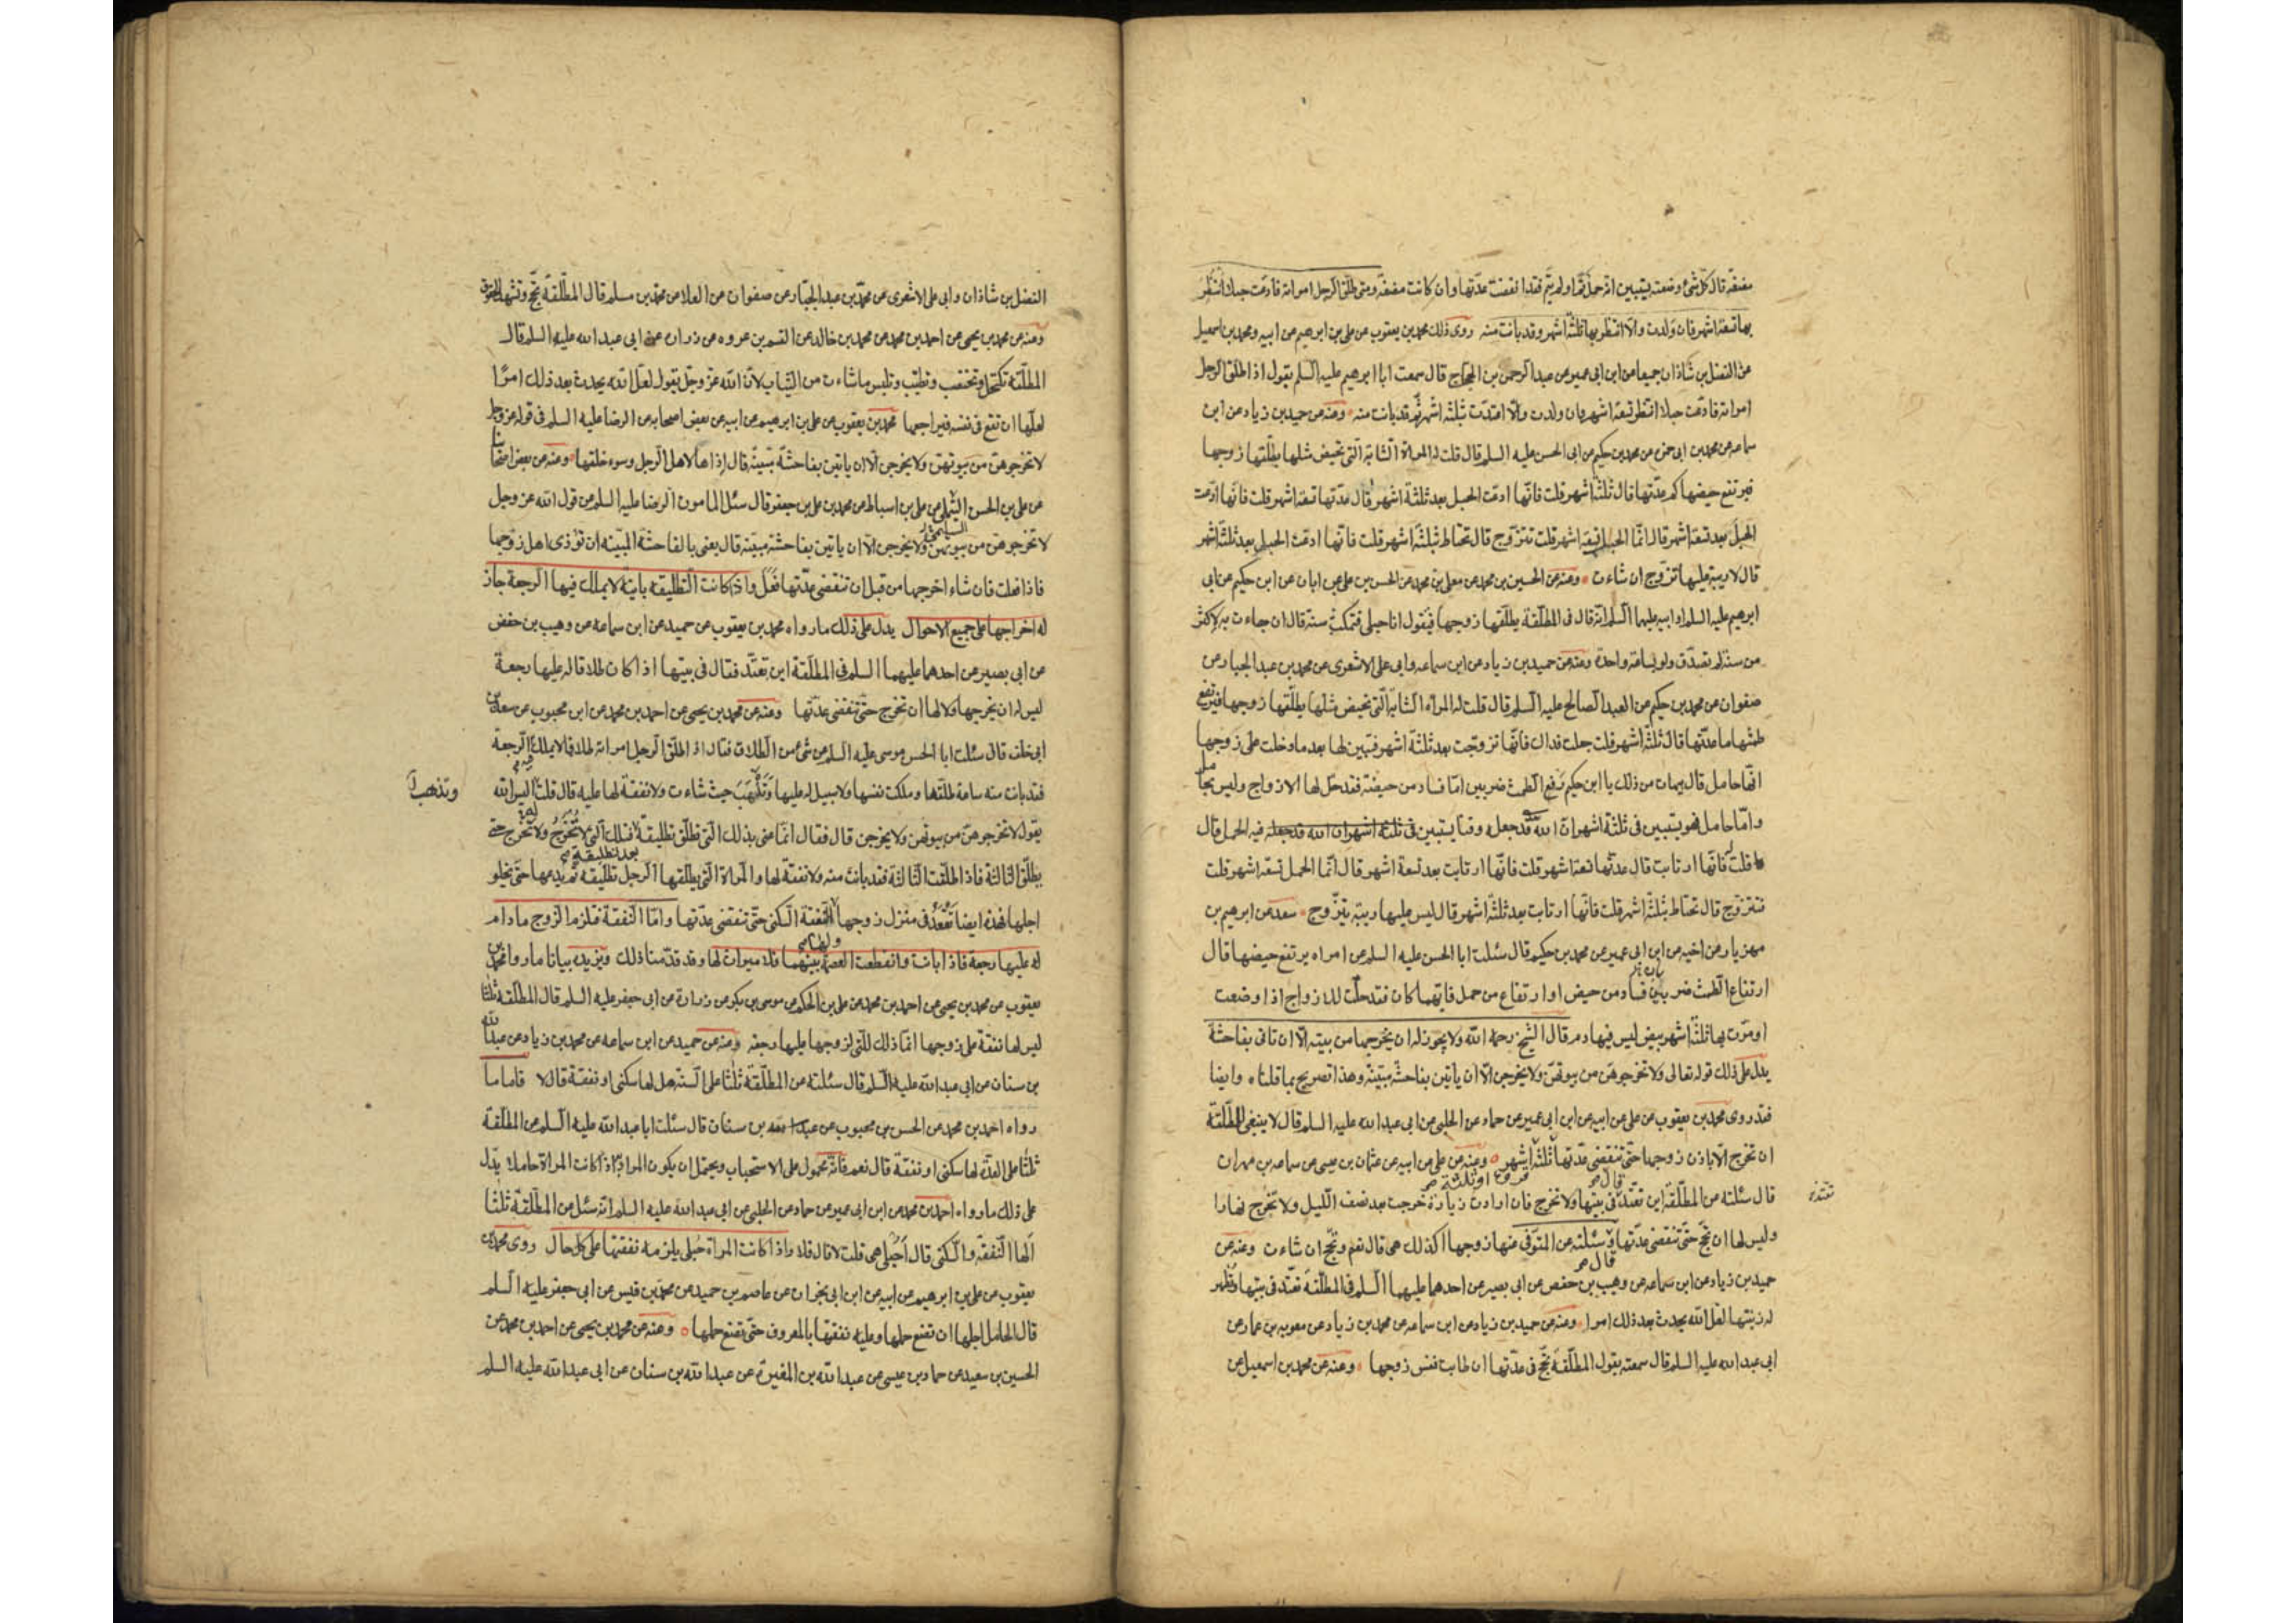 مضغة قال كل شئ وضعته يستبين انه حمل تم او لم يتم فقد انقضت عدتها وان كانت مضغة ومتى طلق الرجل امراته فادعت حبلا انتظر
بها تسعة اشهر فان ولدت والا انتظر بها ثلثة اشهر وقد بانت منه روى ذلك محمد بن يعقوب عن علي بن ابرهيم عن ابيه ومحمد بن اسمعيل
عن الفضل بن شاذان جميعا عن ابن ابي عمير عن عبد الرحمن بن الحجاج قال سمعت ابا ابرهيم عليه السلم يقول اذا طلق الرجل
امراته فادعت حبلا انتظر تسعة اشهر فان ولدت والا اعتدت ثلثة اشهر ثم قد بانت منه وعنه عن حميد بن زياد عن ابن
سماعه عن محمد بن ابي حمزه عن محمد بن حكيم عن ابي الحسن عليه السلم قال قلت له المراة الشابة التي تحيض مثلها يطلقها زوجها
فيرتفع حيضها كم عدتها قال ثلثة اشهر قلت فانها ادعت الحبل بعد ثلثة اشهر قال عدتها تسعة اشهر قلت فانها ادعت
الحبل بعد تسعة اشهر قال انما الحبل تسعة اشهر قلت تتزوج قال تحتاط بثلثة اشهر قلت فانها ادعت الحبل بعد ثلثة اشهر
قال لا ريبة عليها تزوج ان شاءت وعنه عن الحسين بن محمد عن معلى بن محمد عن الحسن بن علي عن ابان عن ابن حكيم عن ابي
ابرهيم عليه السلم او ابيه عليهما السلم انه قال في المطلقة يطلقها زوجها فيقول انا حبلى فتمكث سنة قال ان جاءت به لاكثر
من سنة لم تصدق ولو بساعة واحدة وعنه عن حميد بن زياد عن ابن سماعه وابي علي الاشعري عن محمد بن عبد الجبار عن
صفوان عن محمد بن حكيم عن العبد الصالح عليه السلم قال قلت له المراة الشابة التي تحيض مثلها يطلقها زوجها فيرتفع
طمثها ما عدتها قال ثلثة اشهر قلت جعلت فداك فانها تزوجت بعد ثلثة اشهر فتبين لها بعد ما دخلت على زوجها
انها حامل قال هيهات من ذلك يا ابن حكيم رفع الطمث ضربين اما فساد من حيضة فقد حل لها الازواج وليس بحامل
واما حامل فهو يستبين في ثلثة اشهر لان الله قد جعله وقتا يستبين في ثلثة اشهر لان الله قد جعله فيه الحمل قال
قلت فانها ارتابت قال عدتها تسعة اشهر قلت فانها ارتابت بعد تسعة اشهر قال انما الحمل تسعة اشهر قلت
فتتزوج قال تحتاط بثلثة اشهر قلت فانها ارتابت بعد ثلثة اشهر قال ليس عليها ريبة تتزوج سعد عن ابرهيم بن
مهزيار عن اخيه عن ابن ابي عمير عن محمد بن حكيم قال سئلت ابا الحسن عليه السلم عن امراه يرتفع حيضها قال
ارتفاع الطمث ضربين فساد من حيض او ارتفاع من حمل فايهما كان فقد حلت للازواج اذا وضعت
او مرت بها ثلثة اشهر بيض ليس فيها دم قال الشيخ رحمه الله ولا يجوز له ان يخرجها من بيته الا ان تاتي بفاحشة
يدل على ذلك قوله تعالى ولا تخرجوهن من بيوتهن ولا يخرجن الا ان ياتين بفاحشة مبينة وهذا تصريح بما قلناه وايضا
فقد روى محمد بن يعقوب عن علي عن ابيه عن ابن ابي عمير عن حماد عن الحلبي عن ابي عبد الله عليه السلم قال لا ينبغي للمطلقة
ان تخرج الا باذن زوجها حتى تنقضي عدتها ثلثة اشهر وعنه عن علي عن ابيه عن عثمان بن عيسى عن سماعه بن مهران
قروء او ثلثة صح
قال صح
قال سئلته عن المطلقة اين تعتد في بيتها ولا تخرج فان ارادت زيارة خرجت بعد نصف الليل ولا تخرج نهارا
تعتد
وليس لها ان تحج حتى تنقضي عدتها وسئلته عن المتوفى عنها زوجها اكذلك هي قال نعم وتحج ان شاءت وعنه عن
قال صح
حميد بن زياد عن ابن سماعه عن وهيب بن حفص عن ابي بصير عن احدهما عليهما السلم في المطلقة تعتد في بيتها وتظهر
له زينتها لعل الله يحدث بعد ذلك امرا وعنه عن حميد بن زياد عن ابن سماعه عن محمد بن زياد عن معويه بن عمار عن
ابي عبد الله عليه السلم قال سمعته يقول المطلقة تحج في عدتها ان طابت نفس زوجها وعنه عن محمد بن اسمعيل عن
الفضل بن شاذان وابي علي الاشعري عن محمد بن عبد الجبار عن صفوان عن العلا عن محمد بن مسلم قال المطلقة تحج وتشهد الحقوق
وعنه عن محمد بن يحيى عن احمد بن محمد عن محمد بن خالد عن القسم بن عروه عن زراره عن ابي عبد الله عليه السلم قال
المطلقة تكتحل وتختضب وتطيب وتلبس ما شاءت من الثياب لان الله عز وجل يقول لعل الله يحدث بعد ذلك امرا
لعلها ان تقع في نفسه فيراجعها محمد بن يعقوب عن علي بن ابرهيم عن ابيه عن بعض اصحابه عن الرضا عليه السلم في قوله عز وجل
لا تخرجوهن من بيوتهن ولا يخرجن الا ان ياتين بفاحشة مبينة قال اذاها لاهل الرجل وسوء خلقها وعنه عن بعض اصحابنا
عن علي بن الحسن التيملي عن علي بن اسباط عن محمد بن علي بن جعفر قال سئل المامون الرضا عليه السلم عن قول الله عز وجل
لا تخرجوهن من بيوتهن ولا يخرجن الا ان ياتين بفاحشة مبينة قال يعني بالفاحشة المبينه ان تؤذي اهل زوجها
فاذا فعلت فان شاء اخرجها من قبل ان تنقضي عدتها فعل واذا كانت التطليقه باينة لا يملك فيها الرجعة جاز
له اخراجها على جميع الاحوال يدل على ذلك ما رواه محمد بن يعقوب عن حميد عن ابن سماعه عن وهيب بن حفص
عن ابي بصير عن احدهما عليهما السلم في المطلقة اين تعتد فقال في بيتها اذا كان طلاقا له عليها رجعة
ليس له ان يخرجها ولا لها ان تخرج حتى تنقضي عدتها وعنه عن محمد بن يحيى عن احمد بن محمد عن ابن محبوب عن سعد بن
ابي خلف قال سئلت ابا الحسن موسى عليه السلم عن شئ من الطلاق فقال اذا طلق الرجل امراته طلاقا لا يملك فيه الرجعة
فقد بانت منه ساعة طلقها وملكت نفسها ولا سبيل له عليها وتذهب حيث شاءت ولا نفقة لها عليه قال قلت اليس الله
وتذهب
يقول لا تخرجوهن من بيوتهن ولا يخرجن قال فقال انما عنى بذلك التي تطلق تطليقة فتلك التي لا تخرج ولا تخرج حتى
بعد تطليقة صح
يطلق الثالثة فاذا طلقت الثالثة فقد بانت منه ولا نفقة لها والمراة التي يطلقها الرجل تطليقة ثم يدعها حتى يخلو
اجلها فهذه ايضا تقعد في منزل زوجها ولها النفقة والسكنى حتى تنقضي عدتها واما النفقة فتلزم الزوج ما دام
له عليها رجعة فاذا بانت وانقطعت العصمة بينهما فلا ميراث لها وقد قدمنا ذلك ويزيده بيانا ما رواه محمد بن
يعقوب عن محمد بن يحيى عن احمد بن محمد عن علي بن الحكم عن موسى بن بكر عن زرارة عن ابي جعفر عليه السلم قال المطلقة ثلثا
ليس لها نفقة على زوجها انما ذلك للتي لزوجها عليها رجعه وعنه عن حميد عن ابن سماعه عن محمد بن زياد عن عبد الله
بن سنان عن ابي عبد الله عليه السلم قال سئلته عن المطلقة ثلثا على السنة هل لها سكنى او نفقة قال لا فاما ما
رواه احمد بن محمد عن الحسن بن محبوب عن عبد الله بن سنان قال سئلت ابا عبد الله عليه السلم عن المطلقة
ثلثا على العدة لها سكنى او نفقة قال نعم فانه محمول على الاستحباب ويحتمل ان يكون المراد اذا كانت المراة حاملا يدل
على ذلك ما رواه احمد بن محمد عن ابن ابي عمير عن حماد عن الحلبي عن ابي عبد الله عليه السلم انه سئل عن المطلقة ثلثا
الها النفقة والسكنى قال احبلى هي قلت لا قال فلا واذا كانت المراة حبلى يلزمه نفقتها على كل حال روى محمد بن
يعقوب عن علي بن ابرهيم عن ابيه عن ابن ابي نجران عن عاصم بن حميد عن محمد بن قيس عن ابي جعفر عليه السلم
قال الحامل اجلها ان تضع حملها وعليه نفقتها بالمعروف حتى تضع حملها وعنه عن محمد بن يحيى عن احمد بن محمد عن
الحسين بن سعيد عن حماد بن عيسى عن عبد الله بن المغيرة عن عبد الله بن سنان عن ابي عبد الله عليه السلم